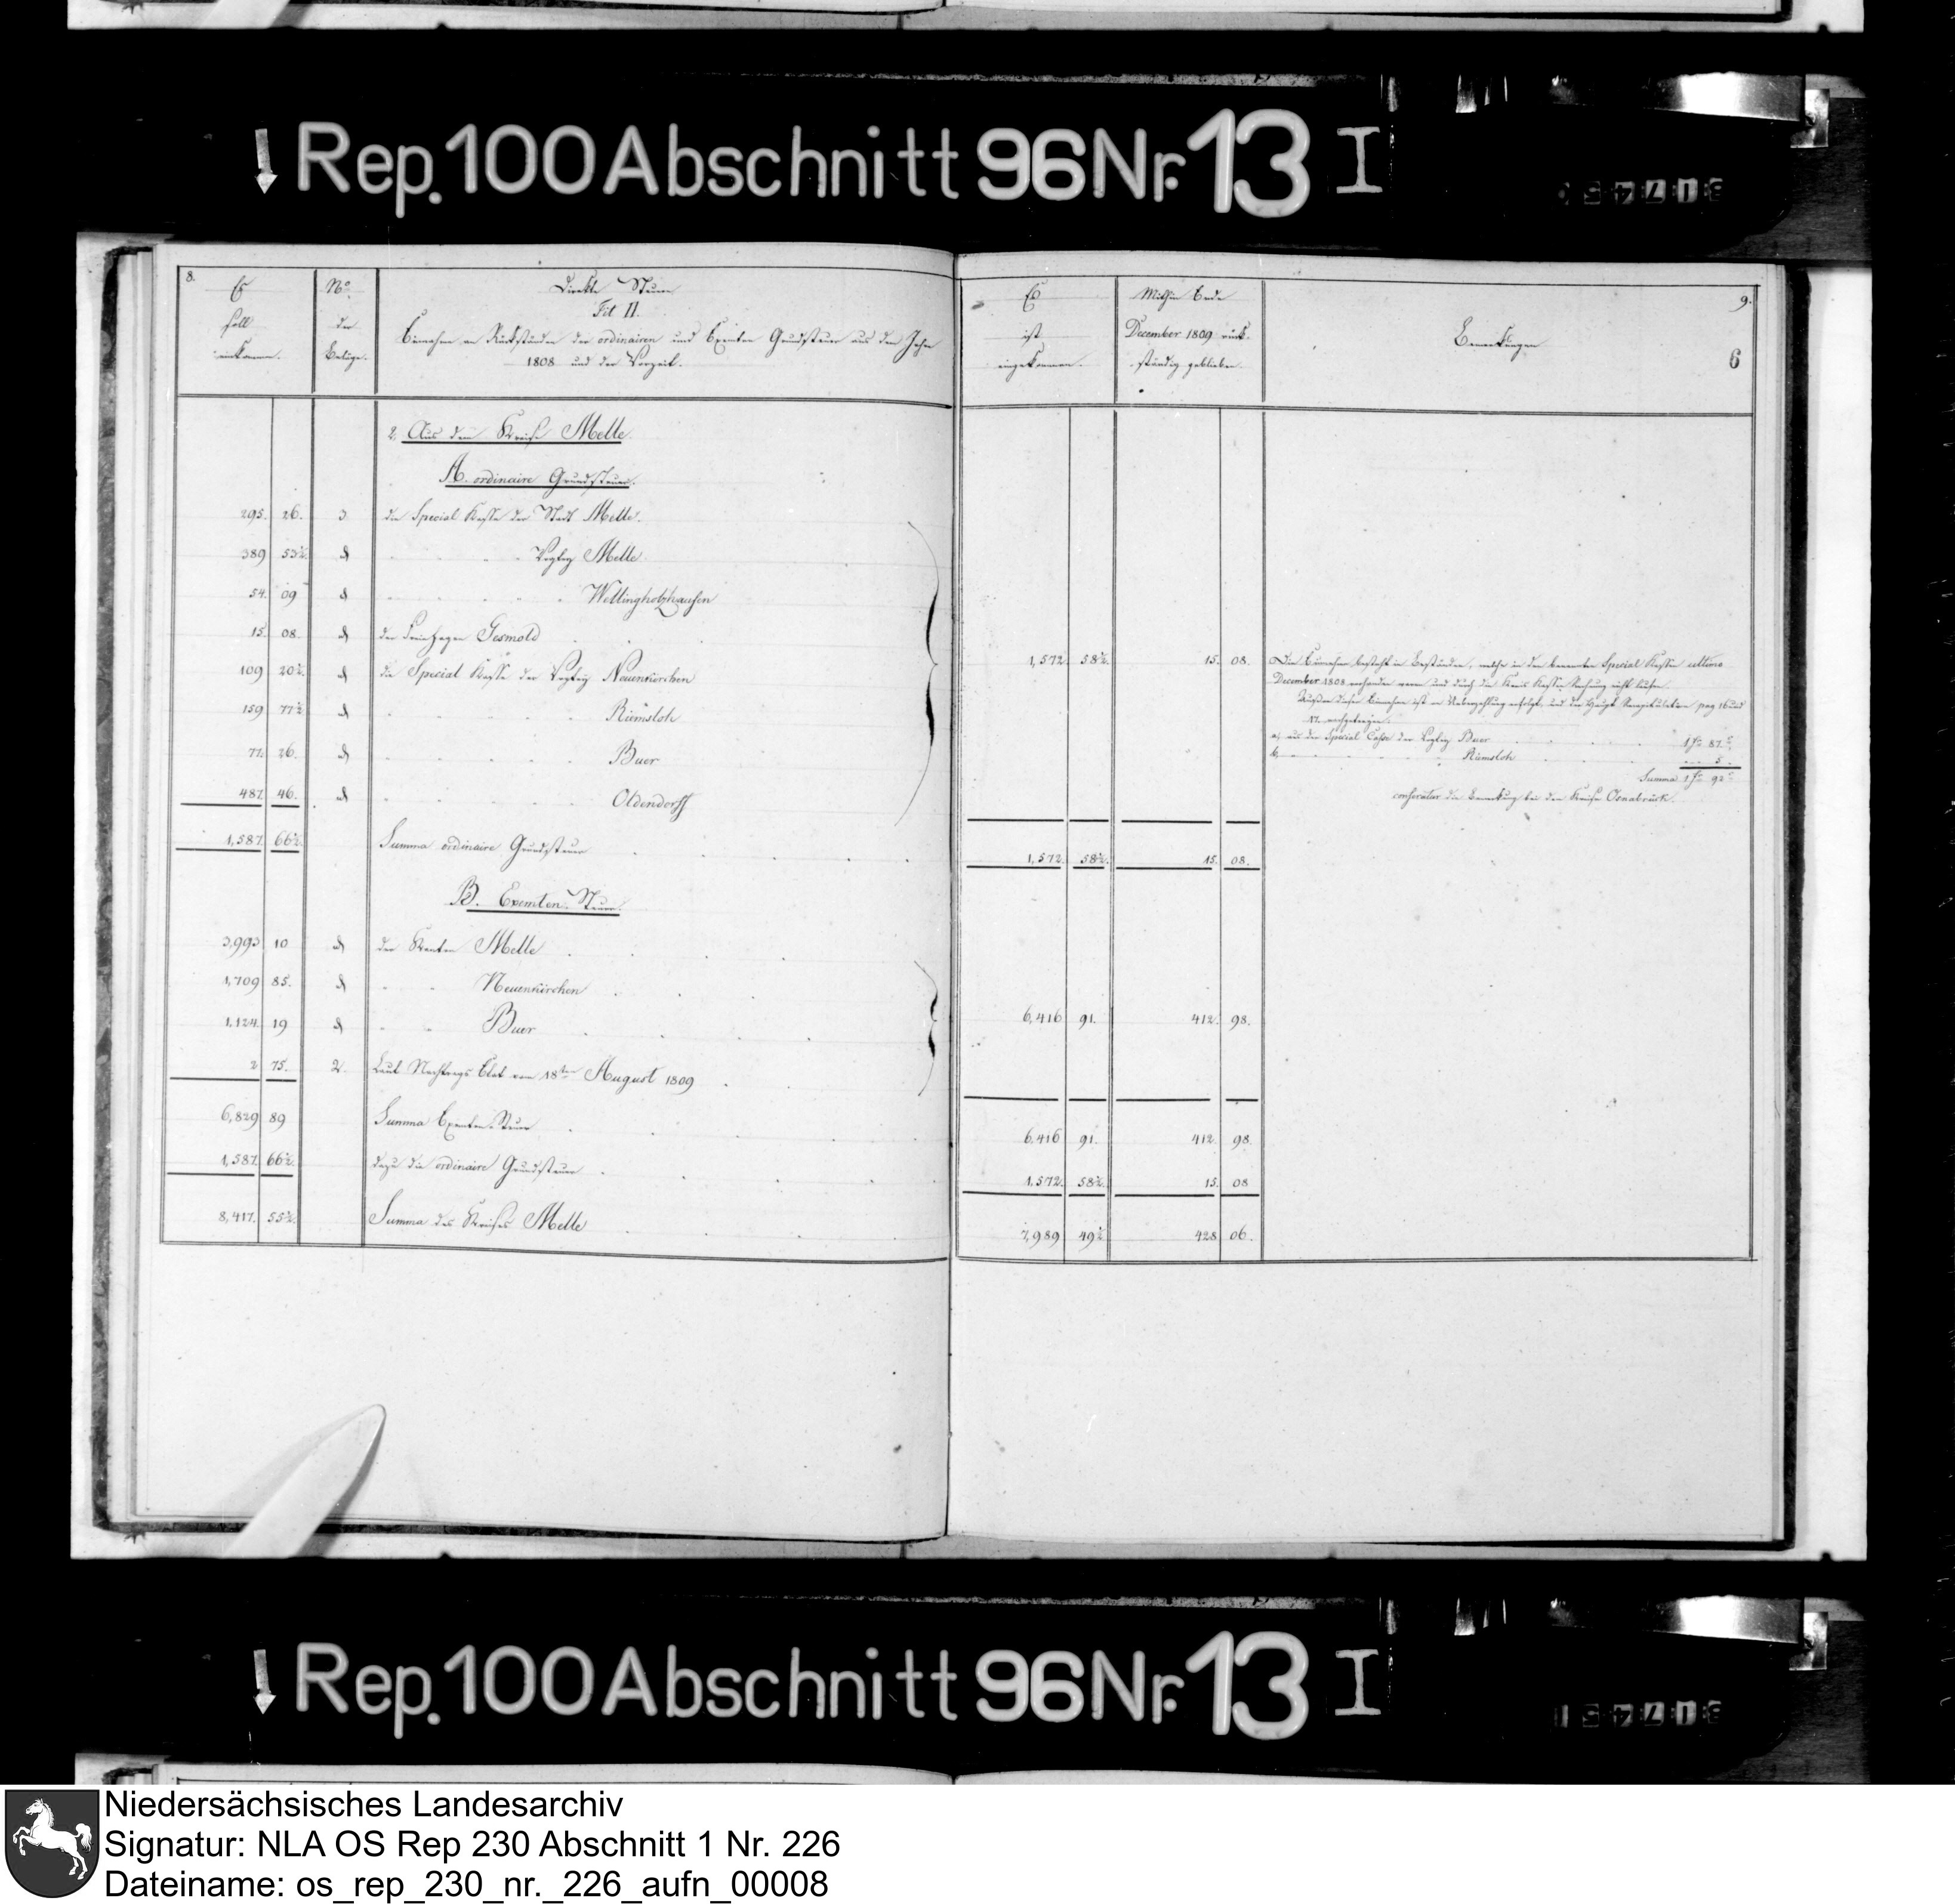 Rep. 100 Abschnitt 96 Nr. 13 I
8.
Es
soll
einkommen.
No.
der
Beläge.
Direkte Steuer
Tit II.
Einnahme an Rückständen der ordinairen und Exemten Grundsteuer aus dem Jahre
1808 und der Vorzeit.
Es
ist
eingekommen.
Mithin Ende
December 1809 rück-
ständig geblieben.
Bemerkungen
9.
6
2. Aus dem Kreise Melle.
A. ordinaire Grundsteuer.
295. 26. 3 die Special Kasse der Stadt Melle.
389 53½ d Vogtey Melle
54. 09 d Wellingholzhausen
15. 08. d Gesmold
109 20½ d die Special Kasse der Vogtey Neuenkirchen
159 77½ d Riemsloh
77. 26. d Buer
487. 46. d Oldendorff
1,572. 58½. 15. 08.
Die Einnahme besteht in Beständen, welche in den benannten Special Kassen ultimo
December 1808 vorhanden waren und durch die Kreis Kassen Rechnung nicht laufen.
Außer dieser Einnahme ist an Ueberzahlung erfolgt, und der Haupt Recapitulation pag 16 und
17. nachgetragen.
a, aus der Special Casse der Vogtey Buer 1 fr 87 c
b, Riemsloh 5
Summa 1 fr 92 c
conferatur die Bemerkung bei dem Kreise Osnabrück.
1,587. 66½ Summa ordinaire Grundsteuer 1,572. 58½. 15. 08.
B. Exemten-Steuer.
3,993 10 d der Kanton Melle
1,709 85. d Neuenkirchen
1,124. 19 d Buer
2 75. 2. Laut Nachtrags Etat vom 18ten August 1809
6,416 91. 412. 98.
6,829 89 Summa Exemten-Steuer 6,416 91. 412. 98.
1,587. 66½ dazu die ordinaire Grundsteuer 1,572. 58½. 15. 08
8,417. 55½. Summa des Kreises Melle 7,989 49½ 428 06.
Rep. 100 Abschnitt 96 Nr. 13 I
Niedersächsisches Landesarchiv
Signatur: NLA OS Rep 230 Abschnitt 1 Nr. 226
Dateiname: os_rep_230_nr._226_aufn_00008